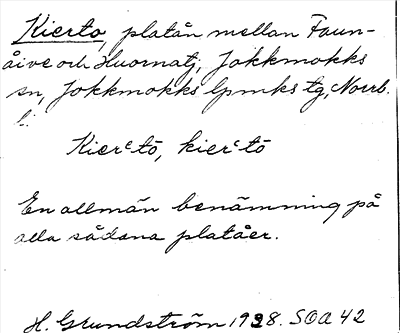 Kierto, platån mellan Faun-
åive och Huornatj, Jokkmokks
sn, Jokkmokks lpmks tg, Norrb.
l.
Kierᶜtō, kierᶜtō
En allmän benämning på
alla sådana platåer.
H. Grundström 1928. SOA 42